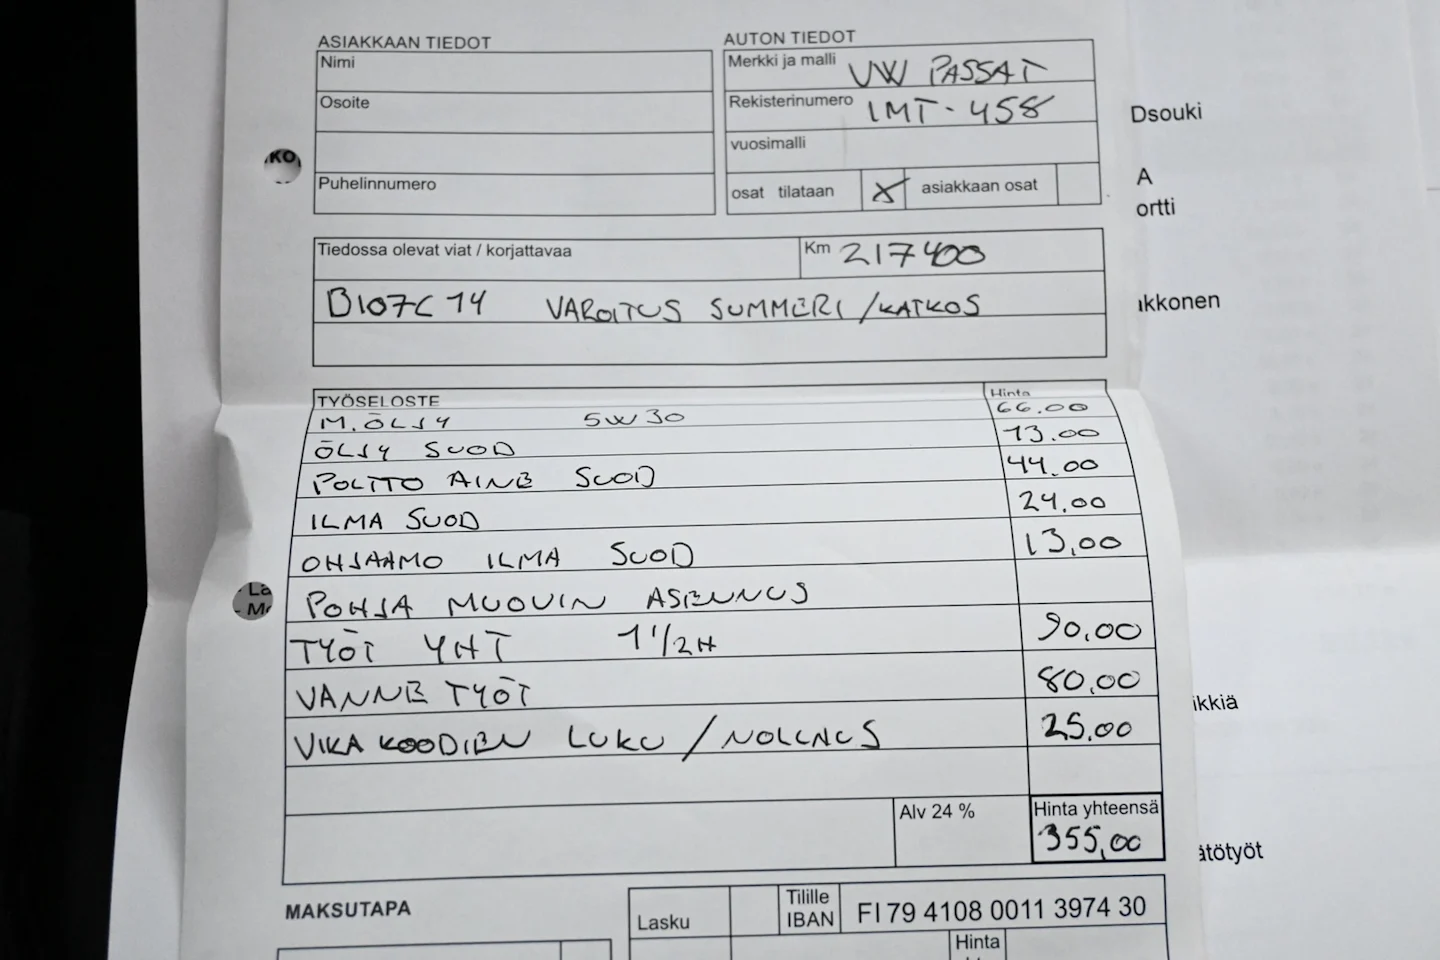 ASIAKKAAN TIEDOT
Nimi
Osoite
Puhelinnumero
AUTON TIEDOT
Merkki ja malli VW PASSAT
Rekisterinumero IMT-458
vuosimalli
osat tilataan X asiakkaan osat
Dsouki
A
ortti
KO
Tiedossa olevat viat / korjattavaa Km 217400
B107C14 VAROITUS SUMMERI/KATKOS
kkonen
TYÖSELOSTE Hinta
M.ÖLJY 5W30 66.00
ÖLJY SUOD 13.00
POLTTO AINE SUOD 44.00
ILMA SUOD 24.00
OHJAAMO ILMA SUOD 13,00
POHJA MUOVIN ASENNUS
La
Mo
TYÖT YHT 1 1/2H 90,00
VANNE TYÖT 80,00
ikkiä
VIKA KOODIEN LUKU / NOLLAUS 25,00
Alv 24 % Hinta yhteensä
355,00
ätötyöt
MAKSUTAPA
Lasku
Tilille
IBAN FI79 4108 0011 3974 30
Hinta